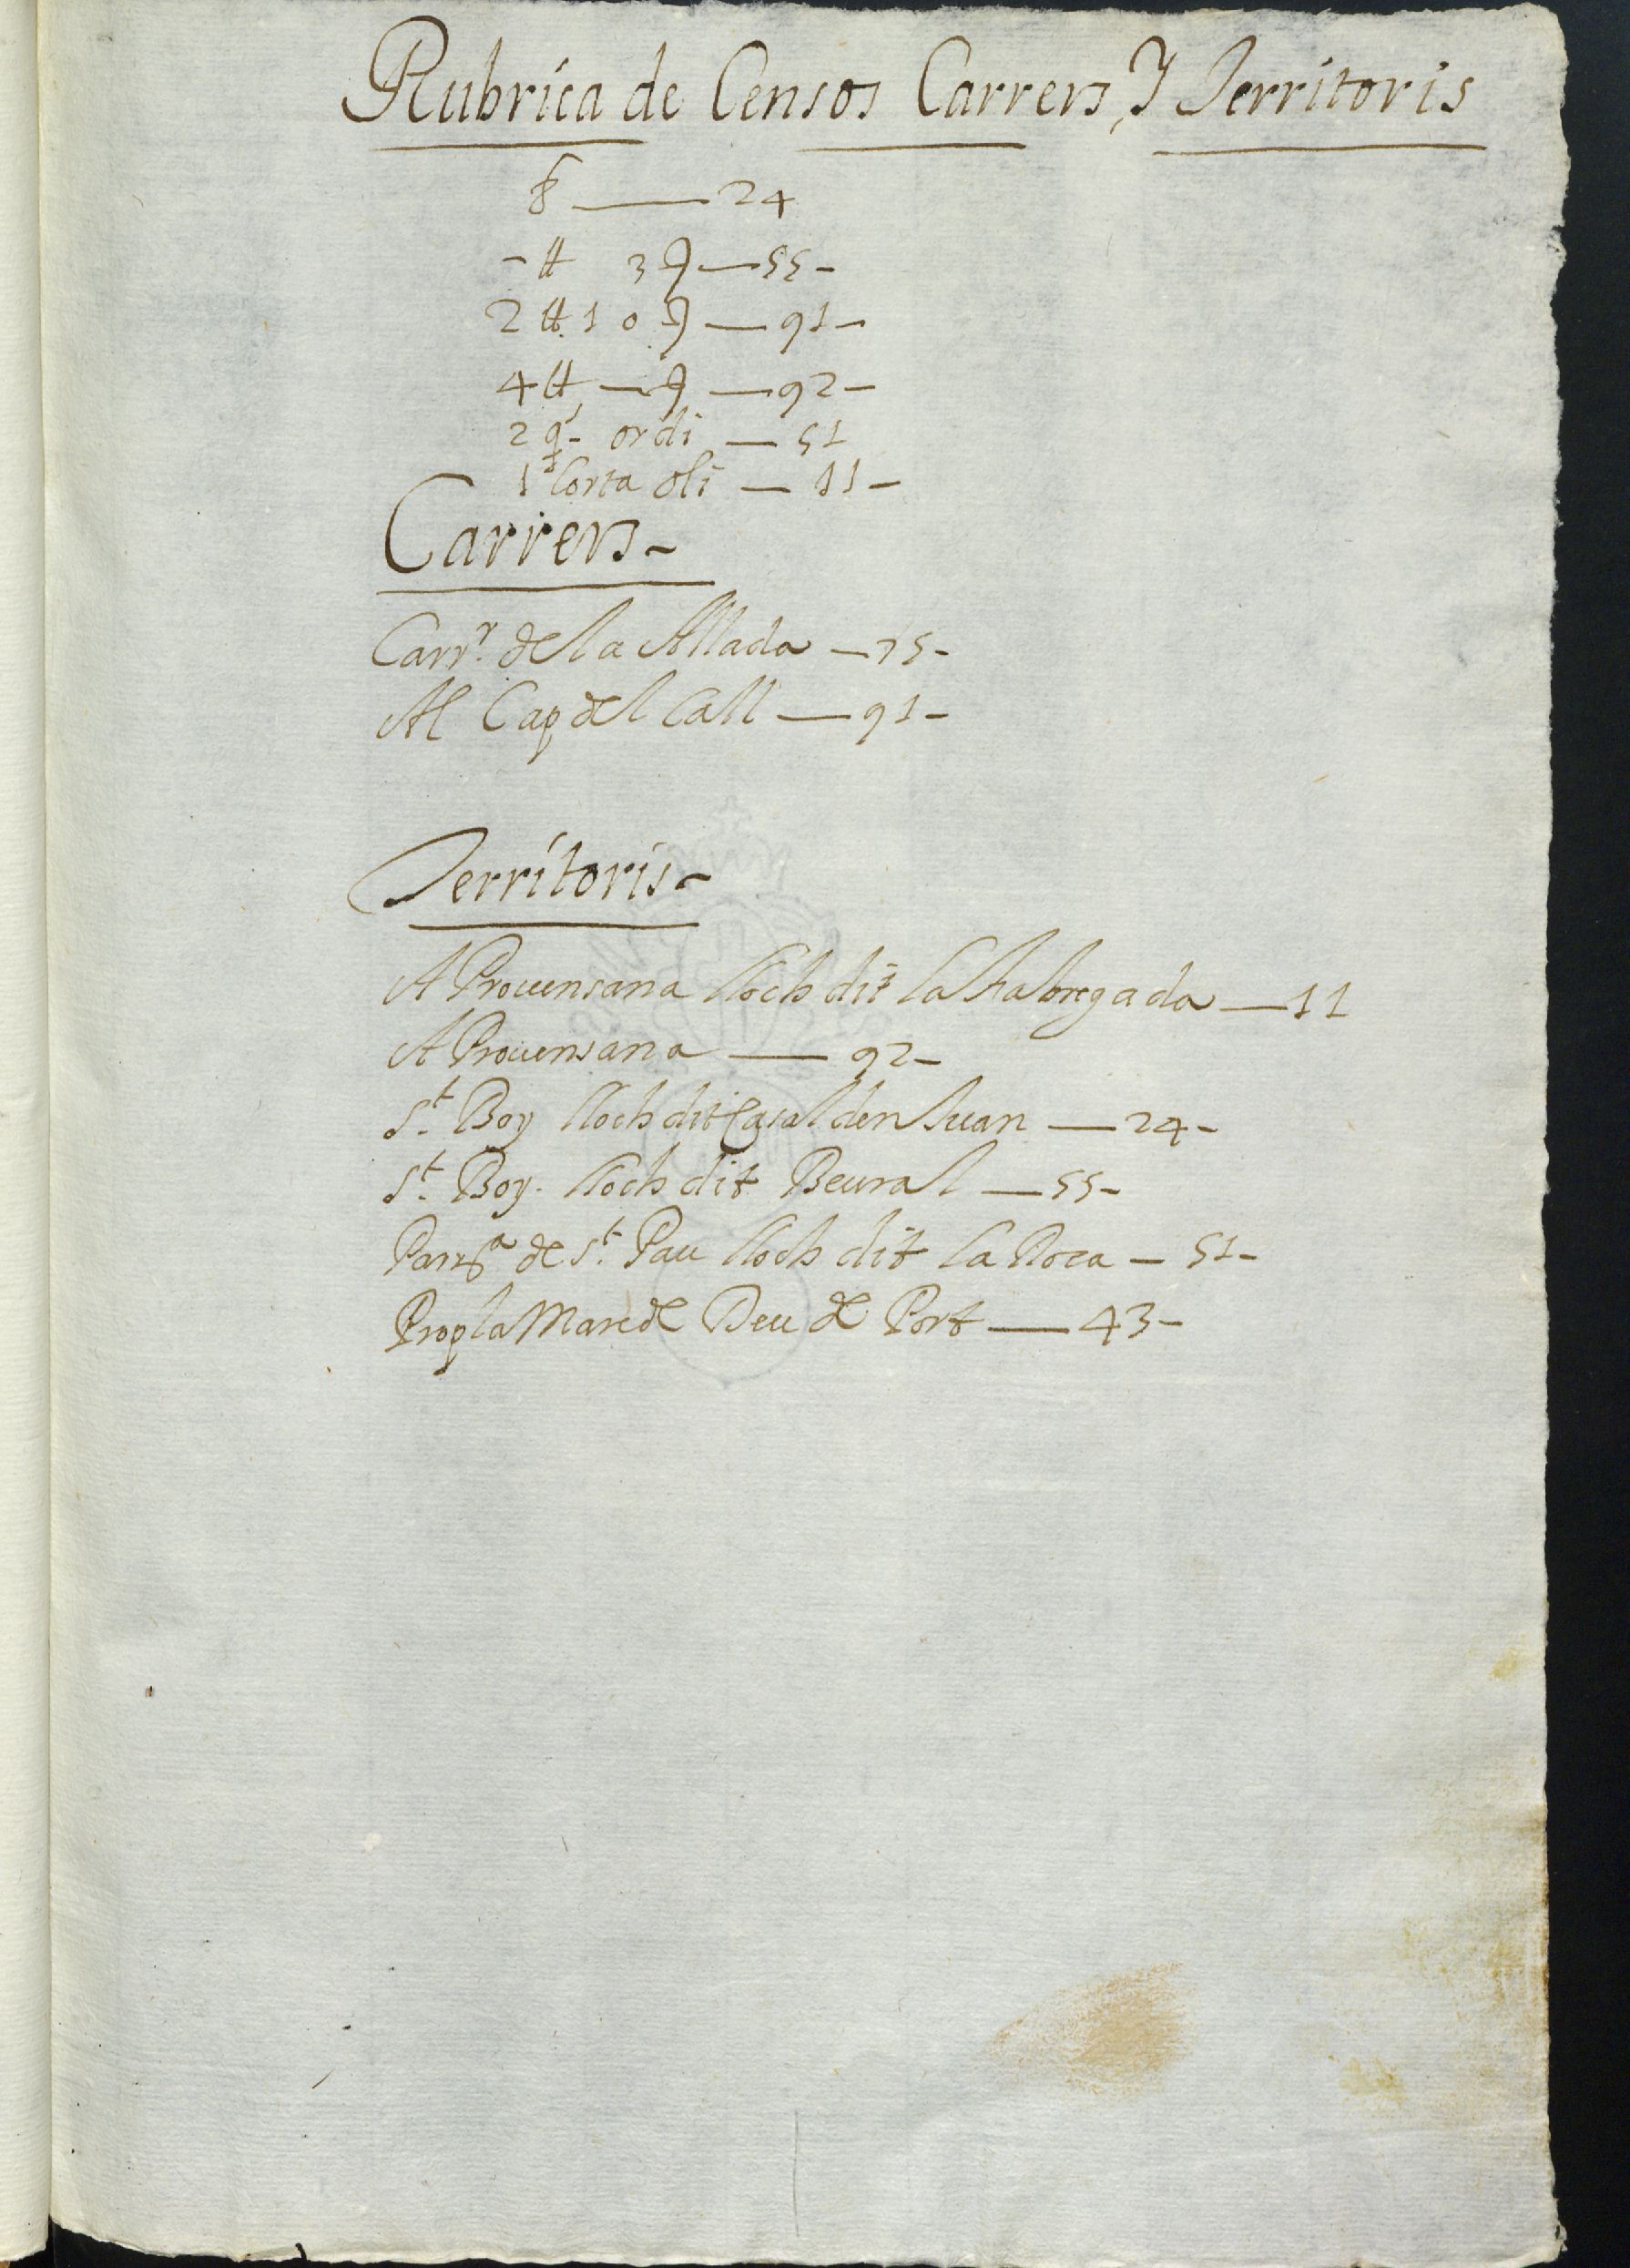 Rubrica de Censos Carrers, Y Territoris
—24
-ll 3 ß—55-
2 ll 10 ß—91-
4 ll —ß—92-
2 q.- ordi —51
1 Corta oli —11-
Carrers-
Carr.r de la Allada —75-
Al Cap del Call —91-
Territoris-
A Prouensana lloch dit la Fabregada —11
A Prouensana —92-
St. Boy lloch dit Casal den Juan —24-
St. Boy. lloch dit Beural —55-
Parrª de St. Pau lloch dit la Roca —51-
Prop la Mare de Deu de Port —43-